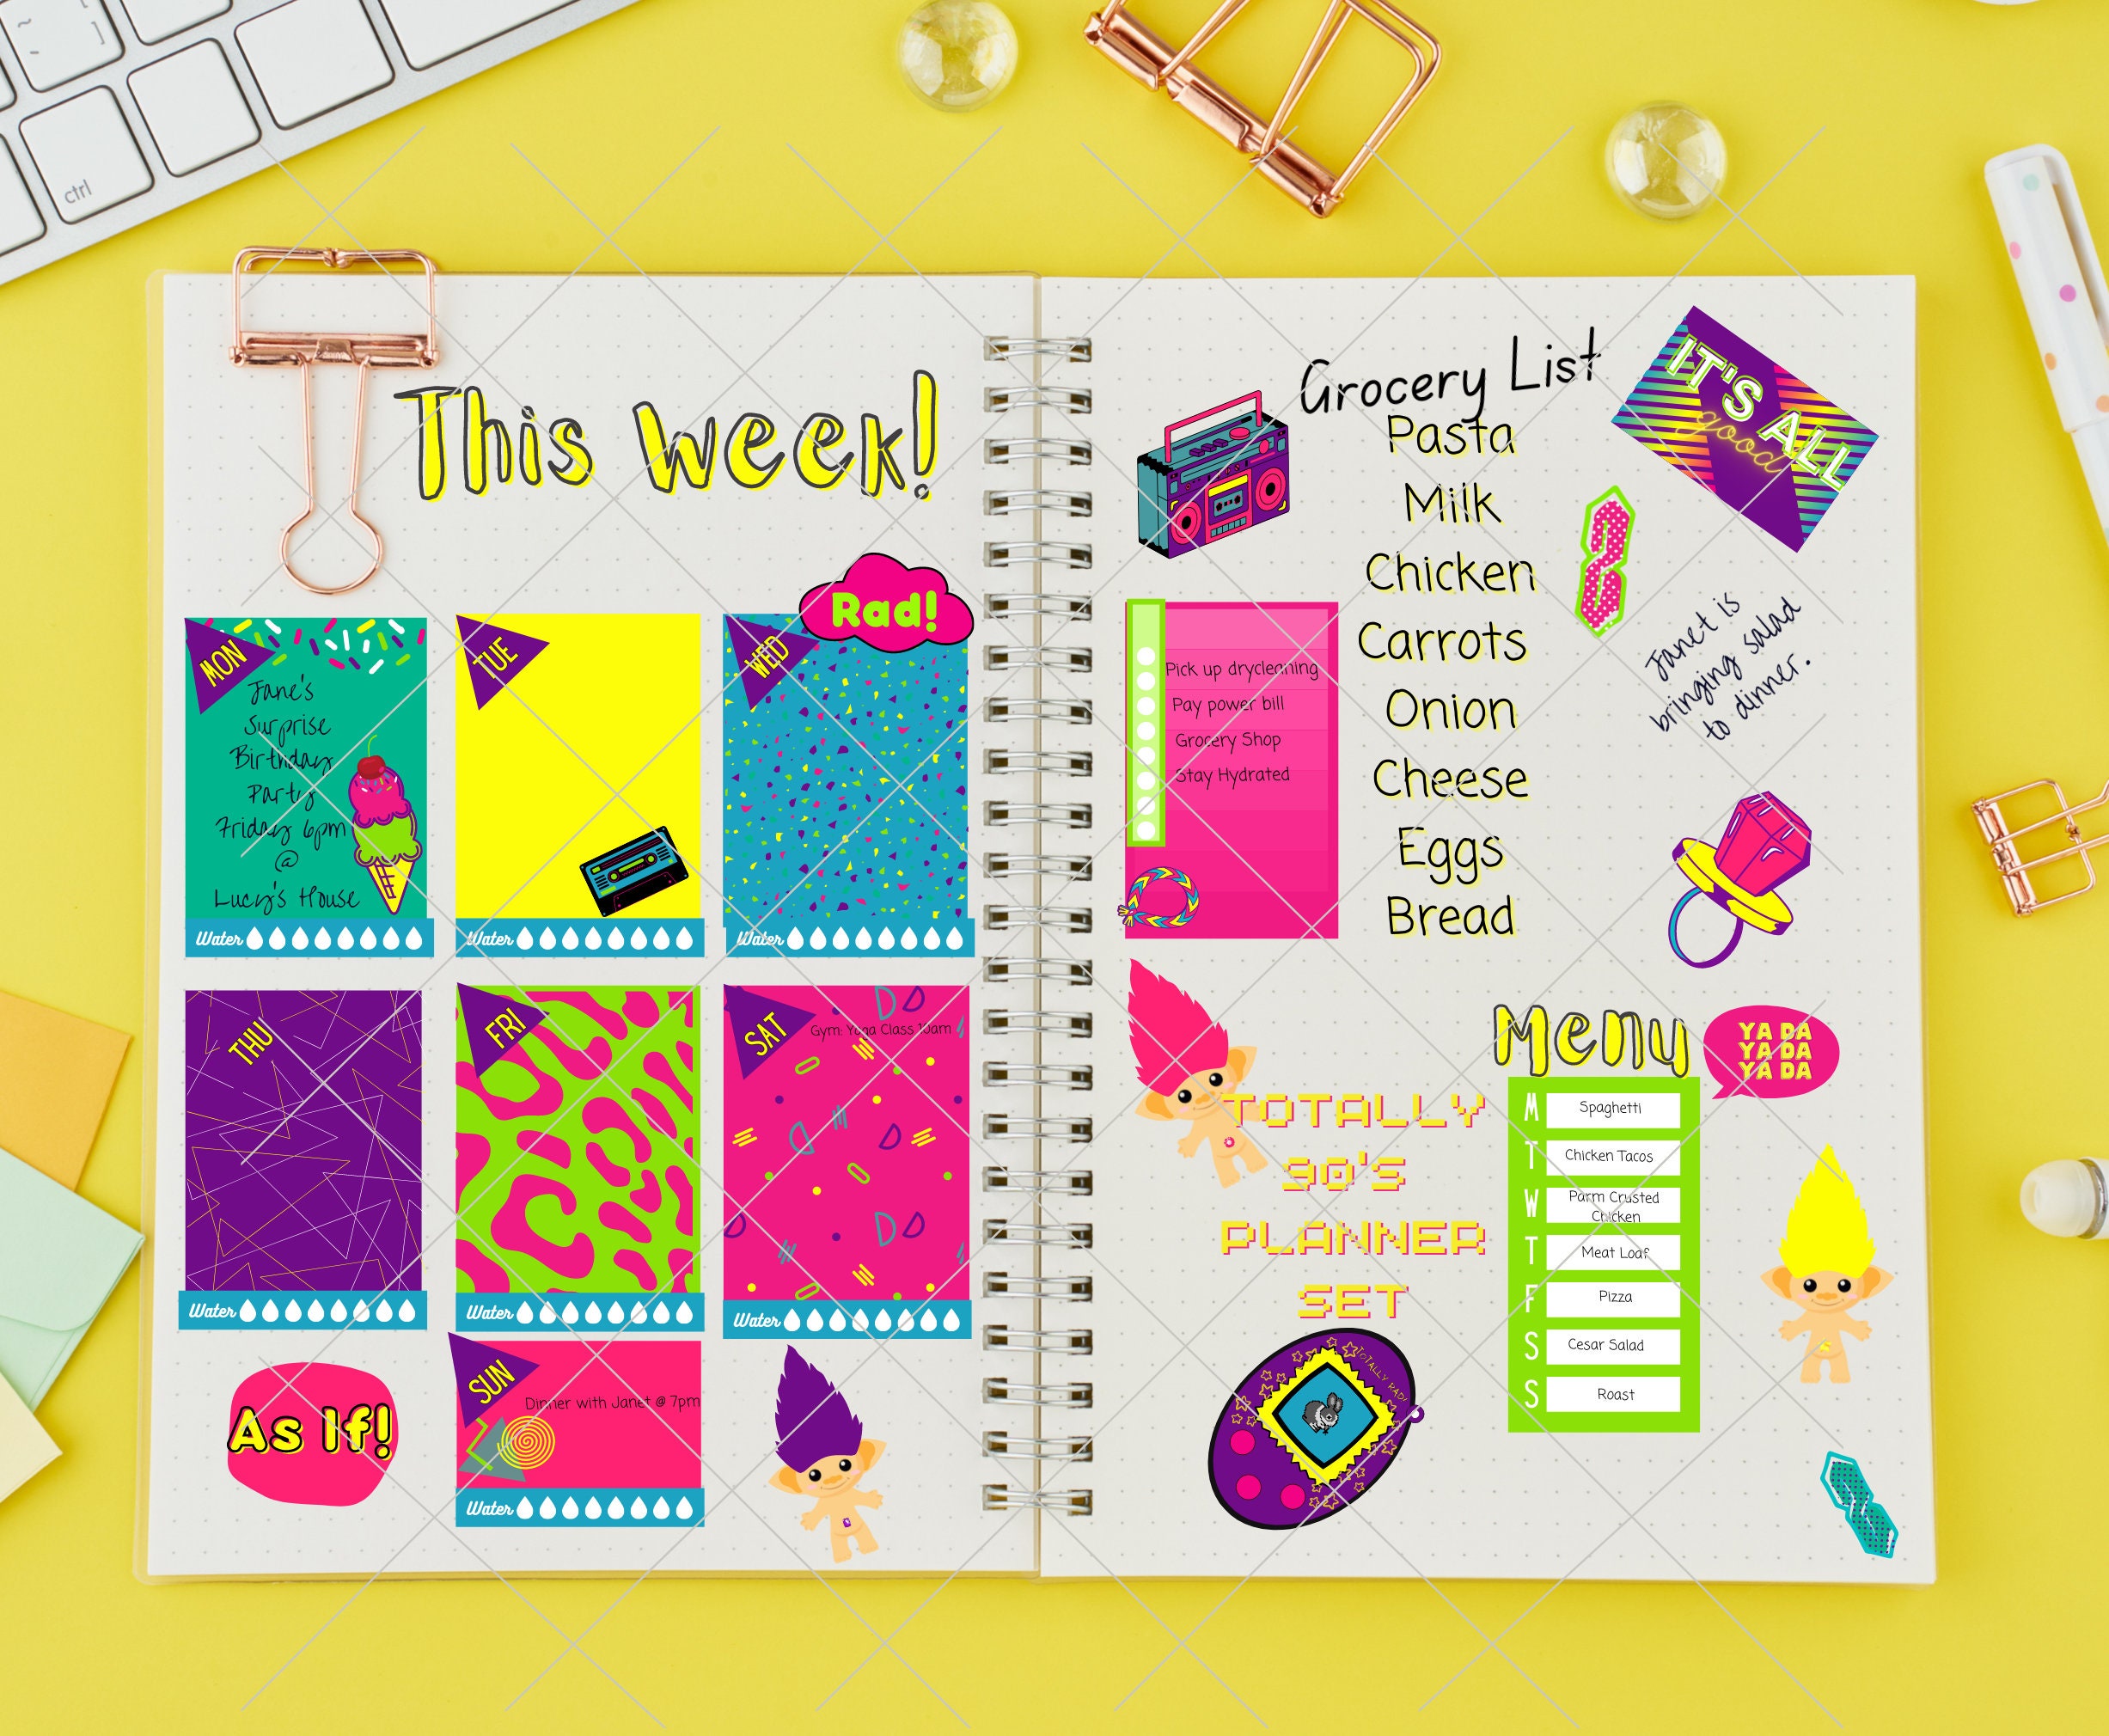 ctrl
This week!
Rad!
MON
Jane's
Surprise
Birthday
Party
Friday 6pm
@
Lucy's House
Water
TUE
Water
WED
Water
THU
Water
FRI
Water
SAT
Gym: Yoga Class 10am
Water
As If!
SUN
Dinner with Janet @ 7pm
Water
Grocery List
Pasta
Milk
Chicken
Carrots
Onion
Cheese
Eggs
Bread
IT'S ALL
good
Pick up drycleaning
Pay power bill
Grocery Shop
Stay Hydrated
Janet is
bringing salad
to dinner.
TOTALLY
90'S
PLANNER
SET
TOTALLY RAD!
Menu
YA DA
YA DA
YA DA
M Spaghetti
T Chicken Tacos
W Parm Crusted
Chicken
T Meat Loaf
F Pizza
S Cesar Salad
S Roast